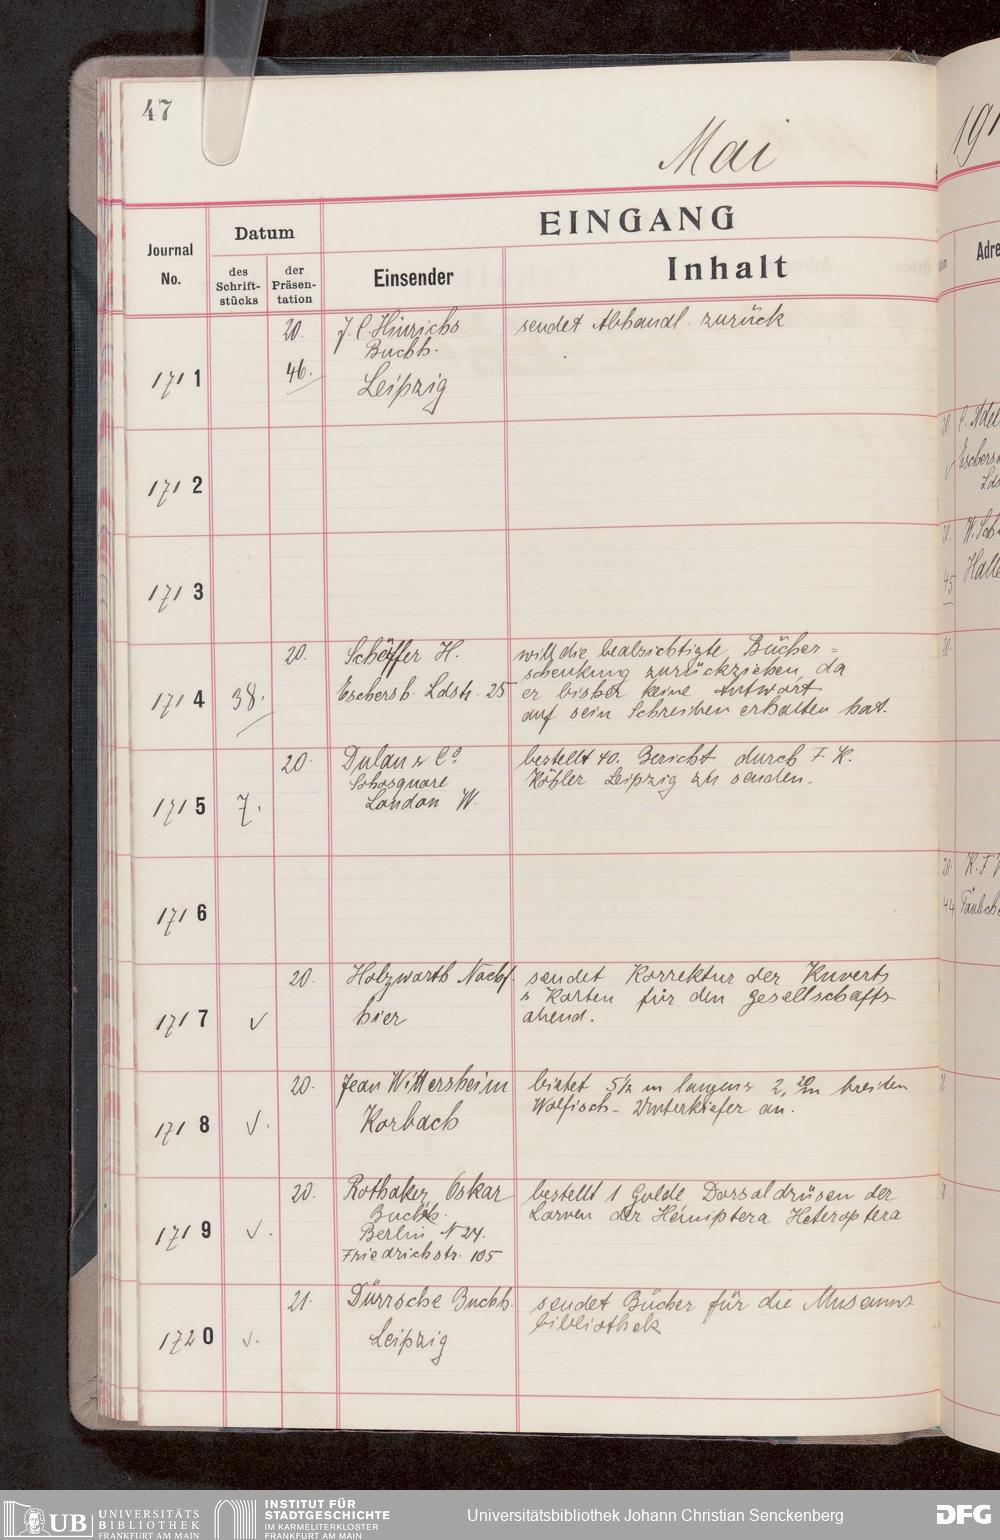 47
Mai
191
EINGANG
Datum
Journal
No.
des
Schrift-
stücks
der
Präsen-
tation
Einsender
Inhalt
Adre
1711
20.
46.
J. C. Hinrichs
Buchh.
Leipzig
sendet Abhandl. zurück
1712
20.
C. Adel
Eschersh
Lds
1713
W. Sch
45
Halle
1714
38.
20.
Schäffer H.
Eschersh. Ldstr. 25
will die beabsichtigte Bücher=
schenkung zurückziehen, da
er bisher keine Antwort
auf sein Schreiben erhalten hat.
1715
7.
20.
Dulau & Co
Sohosquare
London W.
bestellt 40. Bericht durch F. K.
Köhler Leipzig zu senden.
1716
20.
44
K. F. 
1717
✓
20.
Holzwarth Nachf.
hier
sendet Korrektur der Kuverts
& Karten für den Gesellschafts-
abend.
1718
✓.
20.
Jean Wittersheim
Korbach
bietet 5½ m langen & 2,20m breiten
Walfisch- Unterkiefer an.
1719
✓.
20.
Rothaker, Oskar
Buchh.
Berlin N 24.
Friedrichstr. 105
bestellt 1 Gulde Dorsaldrüsen der
Larven der Hemiptera Heteroptera
1720
✓.
21.
Dürrsche Buchh.
Leipzig
sendet Bücher für die Museums
bibliothek
UB
UNIVERSITÄTS
BIBLIOTHEK
FRANKFURT AM MAIN
INSTITUT FÜR
STADTGESCHICHTE
IM KARMELITERKLOSTER
FRANKFURT AM MAIN
Universitätsbibliothek Johann Christian Senckenberg
DFG